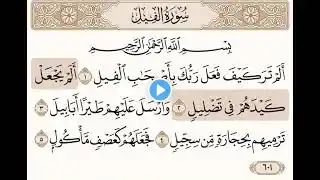 سُورَةُ الفِيلِ
بِسْمِ اللَّهِ الرَّحْمَٰنِ الرَّحِيمِ
أَلَمْ تَرَ كَيْفَ فَعَلَ رَبُّكَ بِأَصْحَابِ الْفِيلِ ١ أَلَمْ يَجْعَلْ
كَيْدَهُمْ فِي تَضْلِيلٍ ٢ وَأَرْسَلَ عَلَيْهِمْ طَيْرًا أَبَابِيلَ ٣
تَرْمِيهِم بِحِجَارَةٍ مِّن سِجِّيلٍ ٤ فَجَعَلَهُمْ كَعَصْفٍ مَّأْكُولٍ ٥
٦٠١